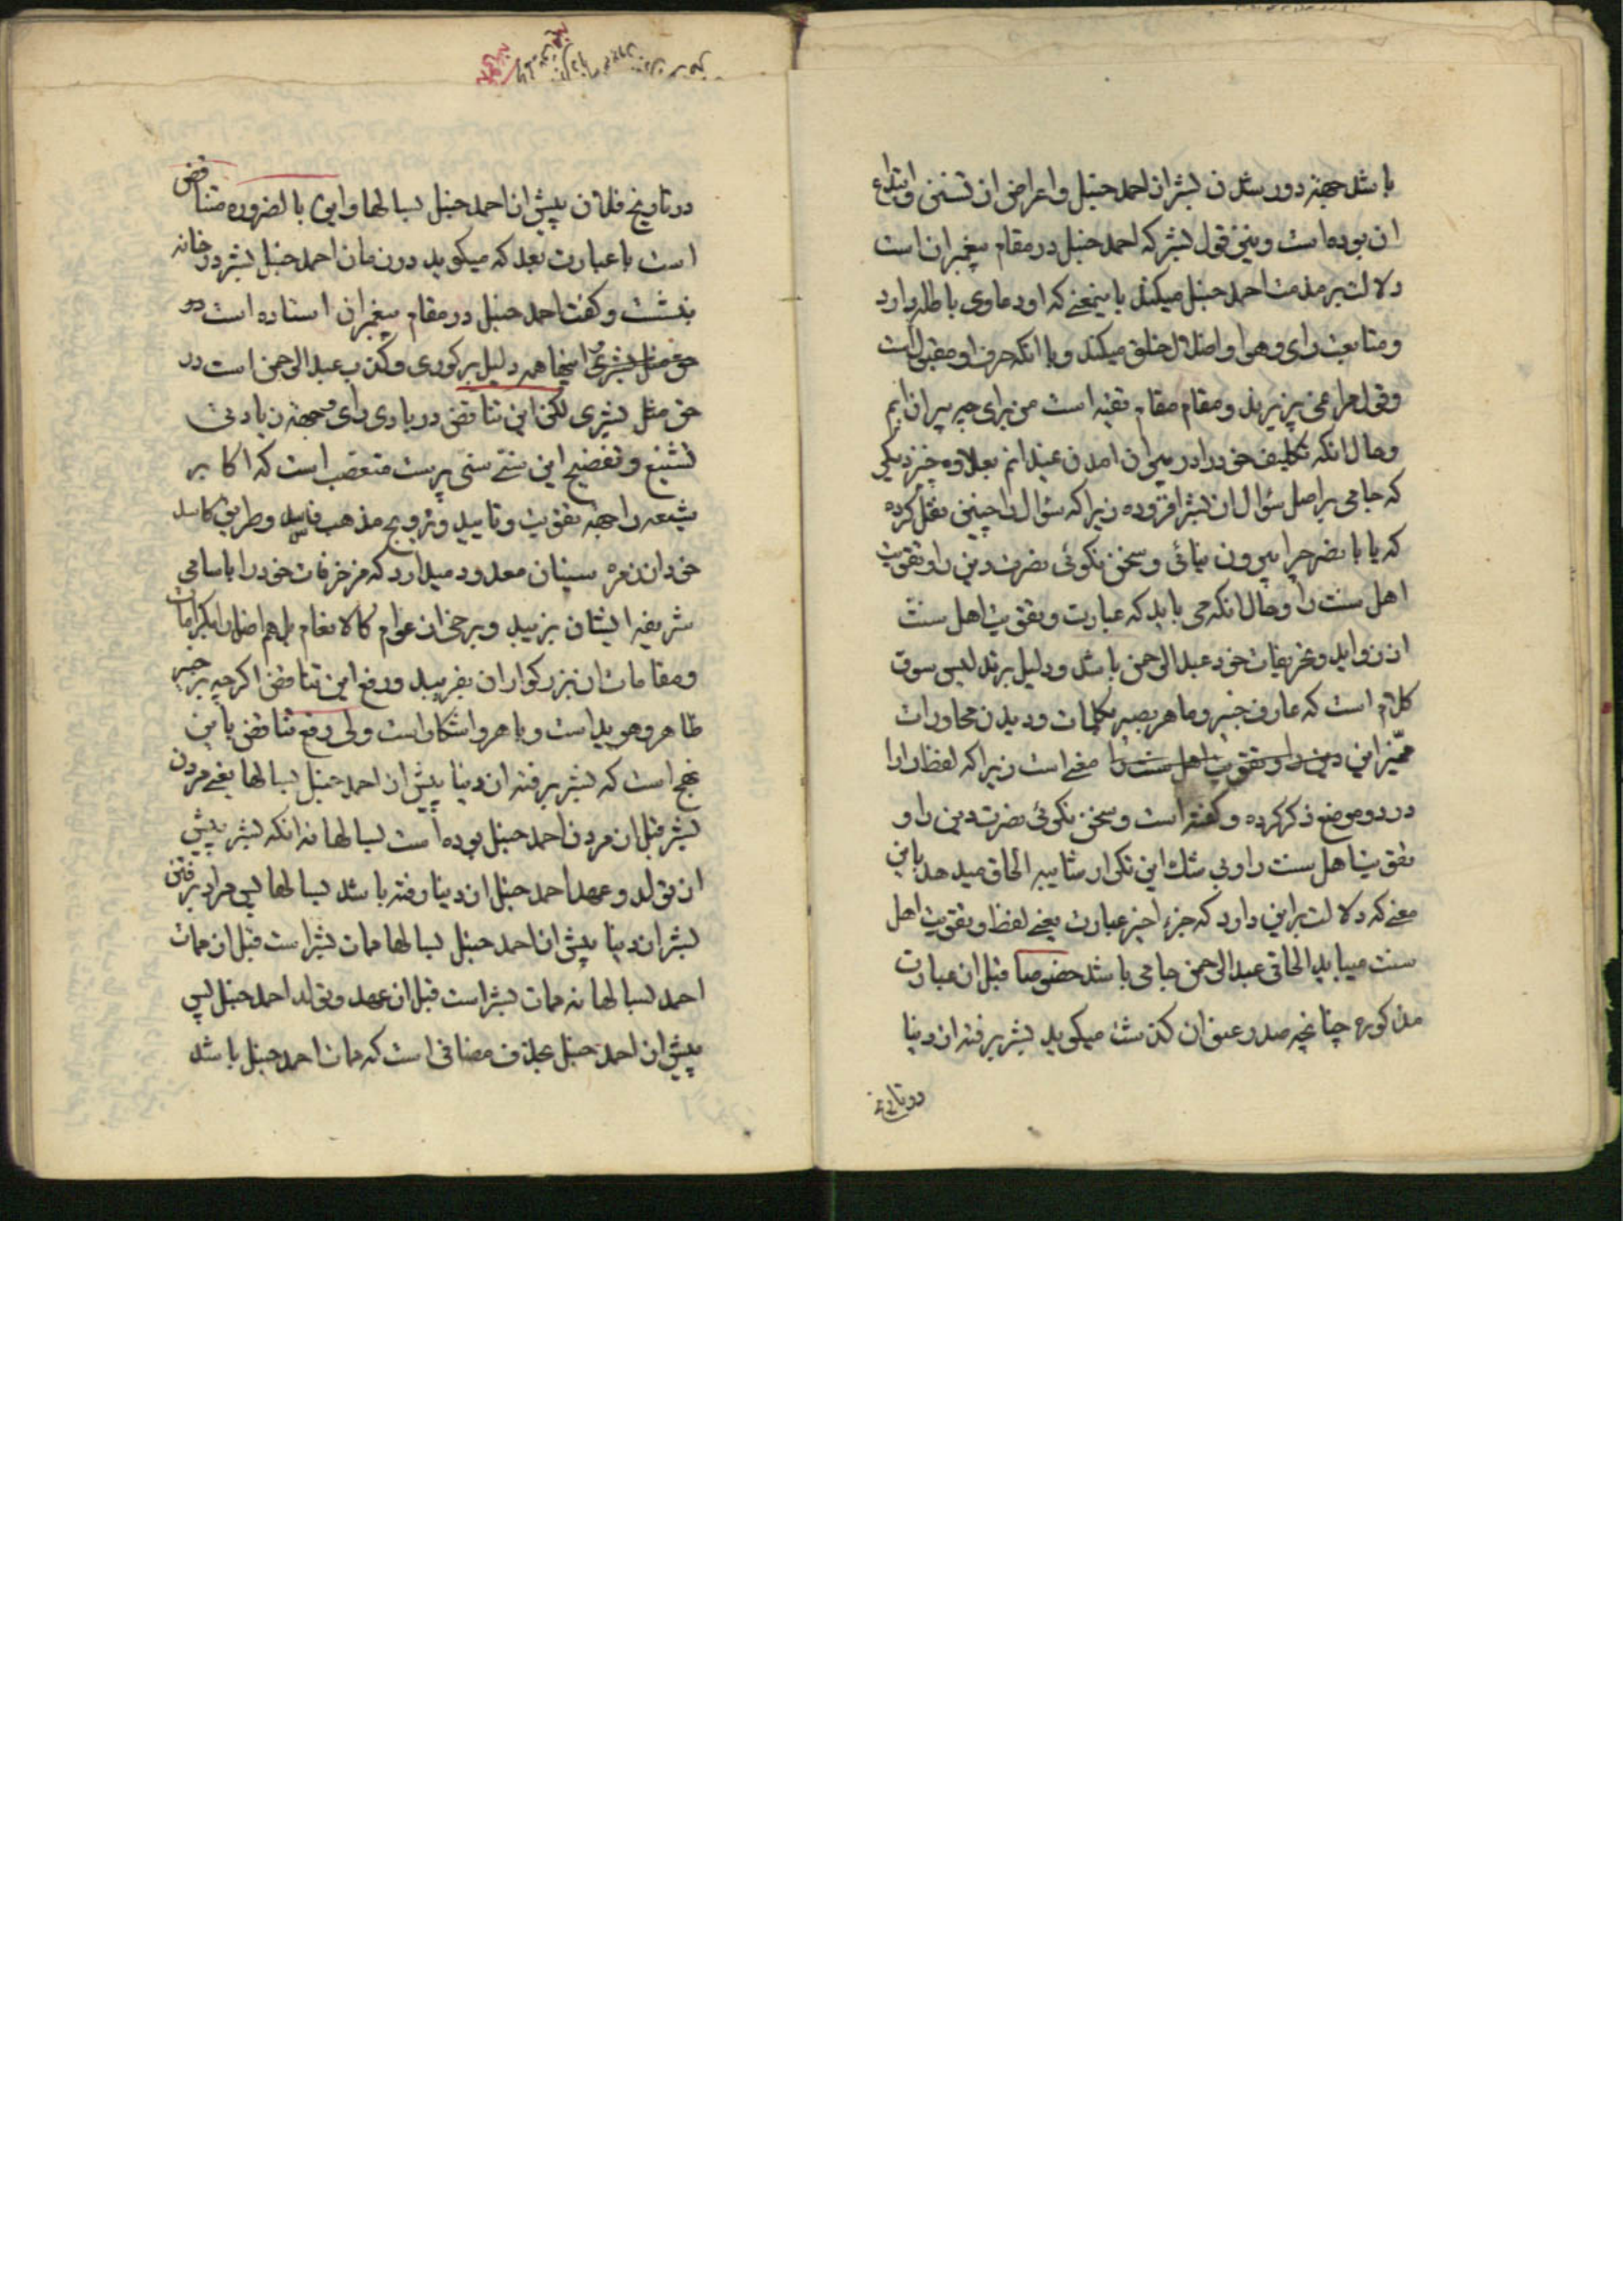 باشد جهة دور شدن بشر از احمد حنبل و اعراض از تسنن و ابتداع
ان بوده است و نیز قول بشر که احمد حنبل در مقام پیغمبران است
دلالت بر مذمت احمد حنبل میکند باینمعنی که او دعاوی باطله دارد
و متابعت رای و هوا و اضلال خلق میکند و با انکه حرف او مقبول است
و قول مرا نمی پزیرند و مقام مقام تقیه است من برای چه بیرون ایم
و حال انکه تکلیف خود را در بیرون امدن نمیدانم بعلاوه چیز دیگر
که جامی بر اصل سؤال از بشر افزوده زیرا که سؤال را چنین نقل کرده
که یا با نصر چرا بیرون نیائی و سخن نگوئی نصرت دین را و تقویت
اهل سنت را و حال انکه می باید که عبارت و تقویت اهل سنت
از زواید و تحریفات خود عبد الرحمن باشد و دلیل بر تدلیس سوق
کلام است که عارف خبیر و ماهر بصیر بکلمات و دیدن محاورات
ممیز این دین را و تقویت اهل سنت را معنی است زیرا که لفظ را را
در دو موضع ذکر کرده و گفته است و سخن نگوئی نصرت دین را و
تقویت اهل سنت را و بی شک این تکرار شایبه الحاق میدهد باین
معنی که دلالت بر این دارد که جزء اخیر عبارت یعنی لفظ و تقویت اهل
سنت میباید الحاقی عبد الرحمن جامی باشد خصوصا قبل از عبارت
مذکوره چنانچه صدر عنوان گذشت میگوید بشر برفته از دنیا
در تاریخ
در تاریخ فلان پیش از احمد حنبل بسالها و این بالضروره متناقض
است با عبارت بعد که میگوید در زمان احمد حنبل بشر در خانه
بنشست و گفت احمد حنبل در مقام پیغمبران استاده است در
حق مثل بشری و اینها همه دلیل بر کوری و کذب عبد الرحمن است در
حق مثل بشری لکن این تناقض در بادی رای و جهة زیادتی
تشنیع و تفضیح این سنی سنی پرست متعصب است که اکابر
شیعه را جهة تقویت و تایید و ترویج مذهب فاسد و طریق کاسد
خود از زمره سنیان معدود میدارد که مزخرفات خود را باسامی
شریفه ایشان بزیبد و برخی از عوام کالانعام بل هم اضل را بکرامات
و مقامات ان بزرگواران بفریبد و رفع این تناقض اگر چه بر خبیر
ظاهر و هویداست و باهر و اشکار است ولی رفع تناقض باین
نهج است که بشر برفته از دنیا پیش از احمد حنبل بسالها یعنی مردن
بشر قبل از مردن احمد حنبل بوده است بسالها نه انکه بشر پیش
از تولد و عهد احمد حنبل از دنیا رفته باشد بسالها پس مراد برفتن
بشر از دنیا پیش از احمد حنبل بسالها ممات بشر است قبل از ممات
احمد بسالها نه ممات بشر است قبل از عهد و تولد احمد حنبل پس
پیش از احمد حنبل بحذف مضافی است که ممات احمد حنبل باشد